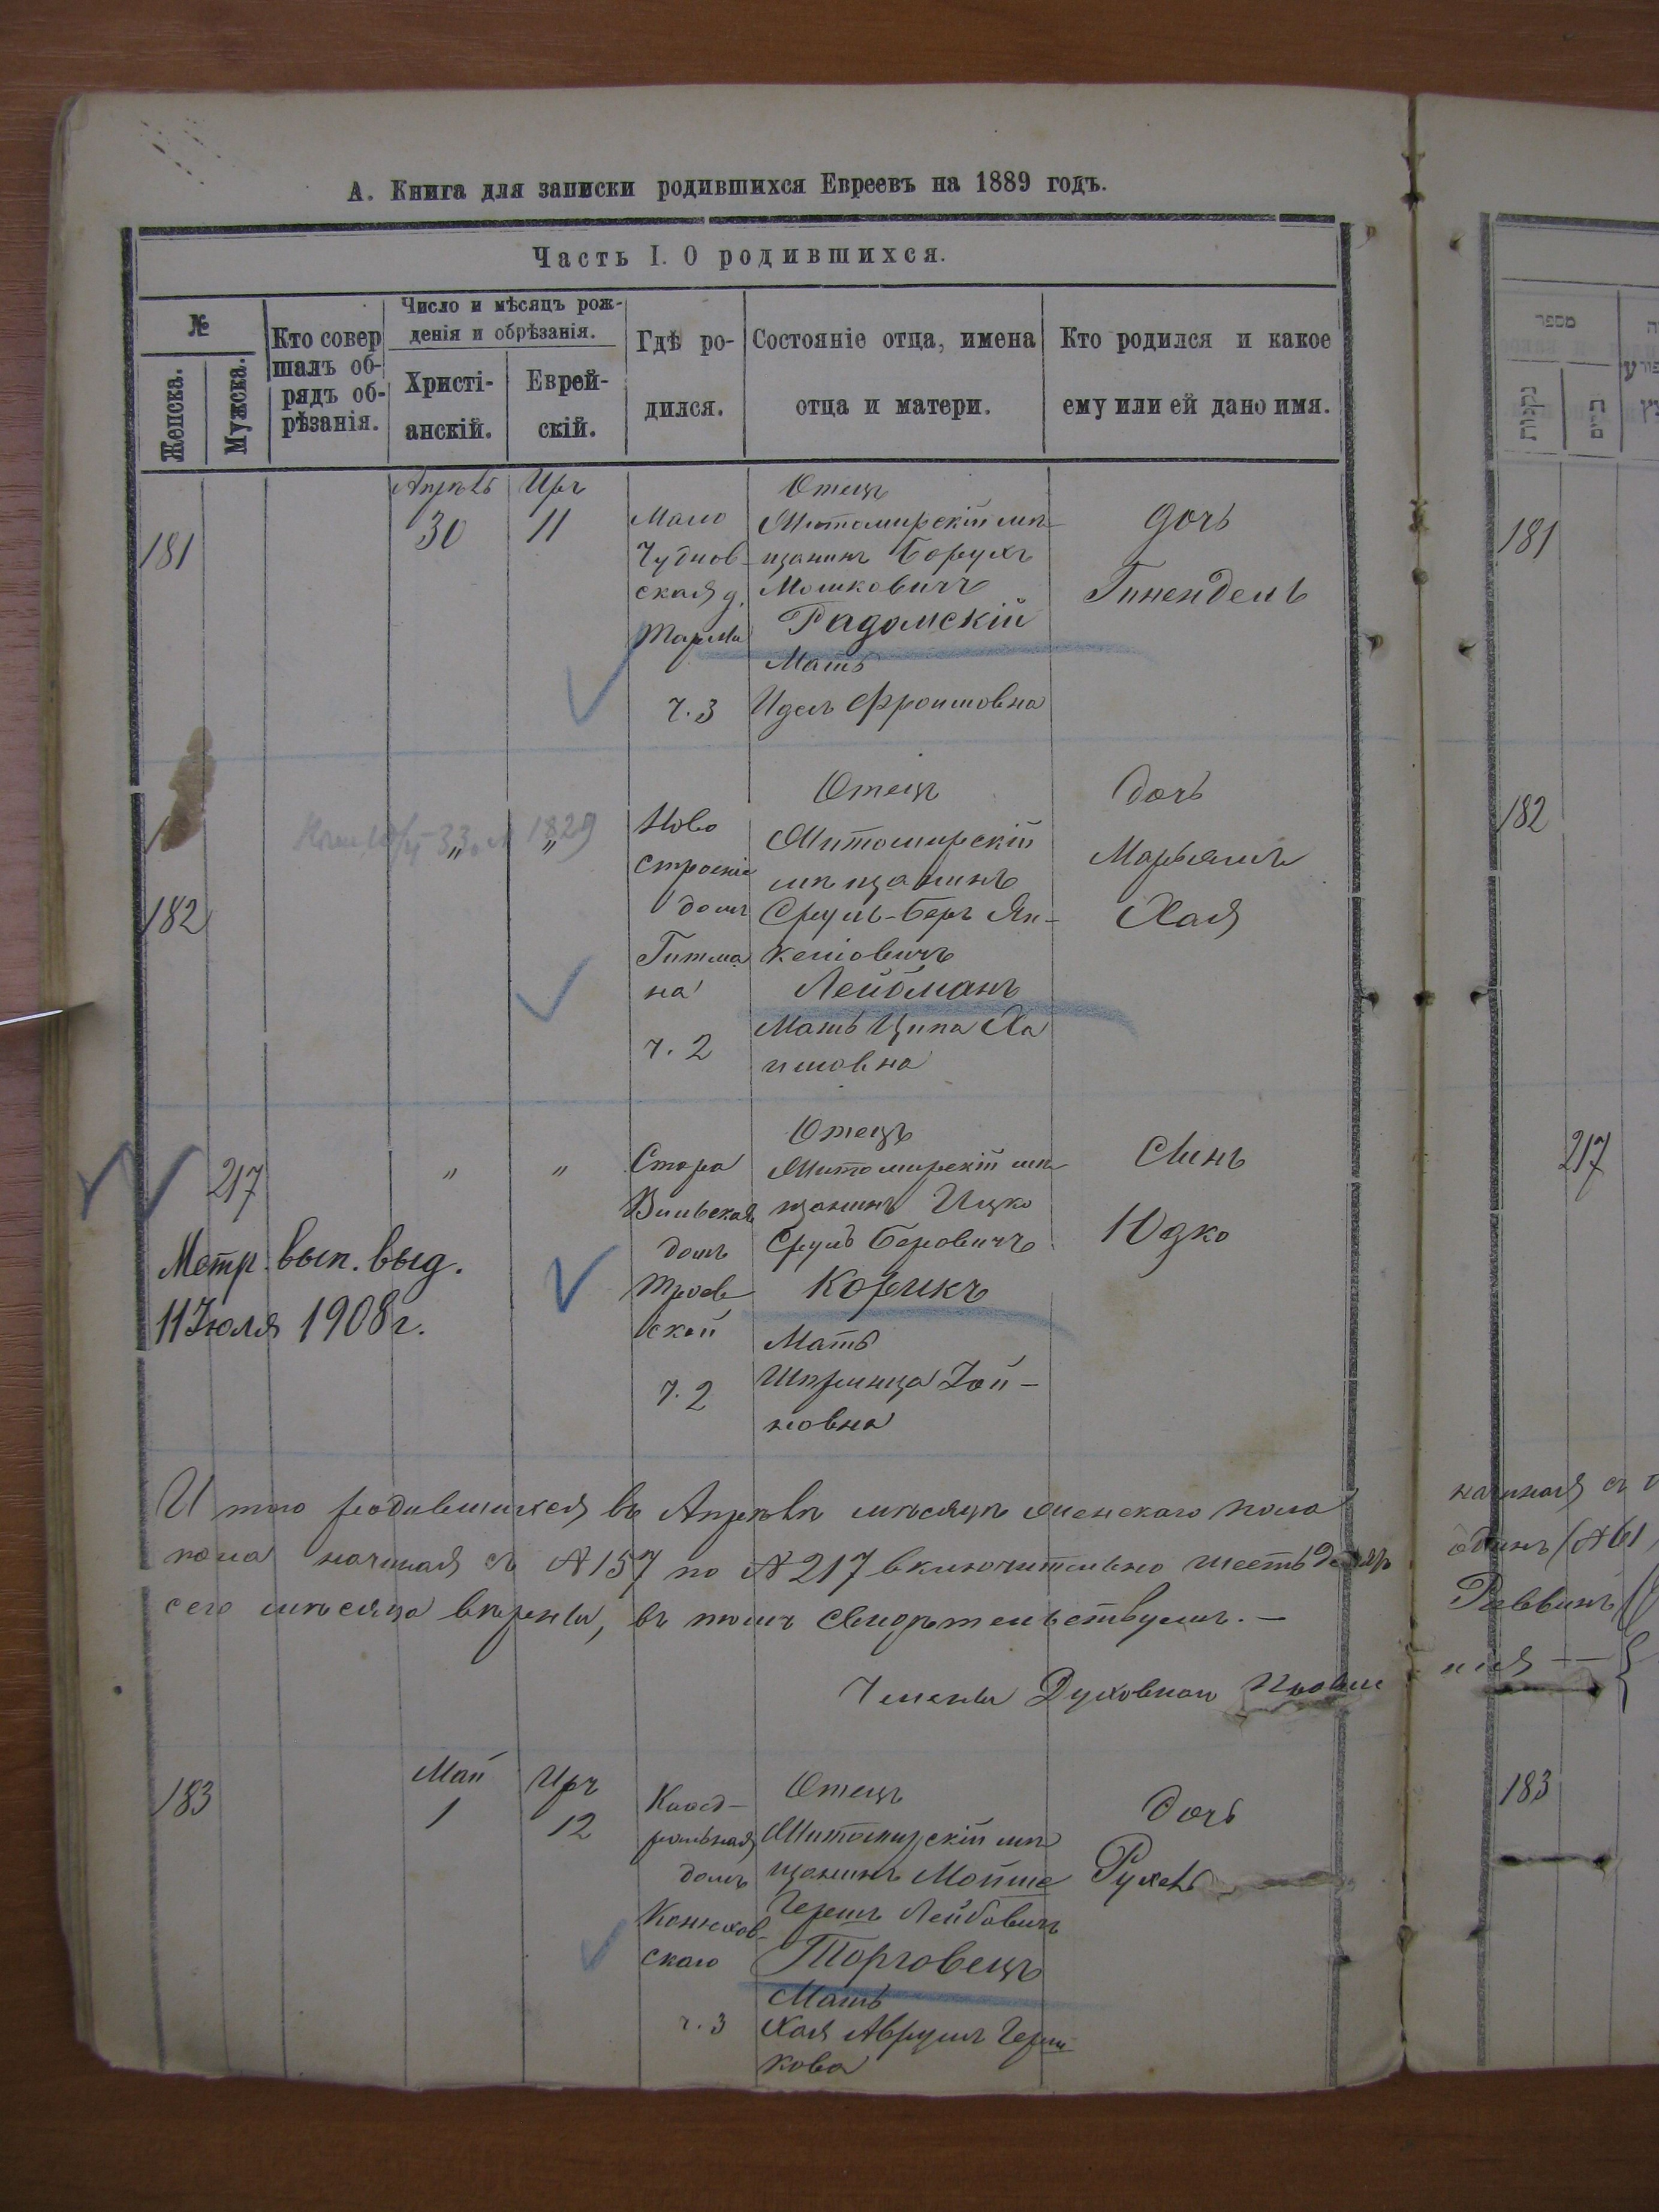 А. Книга для записки родившихся Евреевъ на 1889 годъ.
Часть I. О родившихся.
№
Женска.
Мужска.
Кто совер
шалъ об-
рядъ об-
рѣзанія.
Число и мѣсяцъ рож-
денія и обрѣзанія.
Христі-
анскій.
Еврей-
скій.
Гдѣ ро-
дился.
Состояніе отца, имена
отца и матери.
Кто родился и какое
ему или ей дано имя.
181
Апрель
30
Иръ
11
Мало
Чуднов-
ская д.
ч. 3
Отецъ
Житомирскій мѣ-
щанинъ Борухъ
Мошковичъ
Радомскій
Мать
Идесъ Фроимовна
дочь
Гинендель
182
"
"
1829
Ново
строеніе
домъ
Гитма
на
ч. 2
Отецъ
Житомирскій
мѣщанинъ
Сруль-Беръ Ян-
келіовичъ
Лейбманъ
Мать Ципа Ха
имовна
дочь
Марьямъ
Хая
217
"
"
Метр. вып. выд.
11 Іюля 1908 г.
Старо
Вильская
домъ
ской
ч. 2
Отецъ
Житомирскій мѣ-
щанинъ Ицко
Сруль Беровичъ
Корикъ
Мать
Шпринца Зой-
новна
Сынъ
Юдко
Итого родившихся въ Апрѣлѣ мѣсяцѣ женскаго пола
пола начиная съ №157 по №217 включительно шестьдесятъ
сего мѣсяца вѣрны, въ томъ свидѣтельствуемъ. —
Члены Духовнаго Правле
183
Май
1
Иръ
12
домъ
Конюхов-
скаго
ч. 3
Отецъ
Житомирскій мѣ
щанинъ Мойше
Гершъ Лейбовичъ
Торговецъ
Мать
Хая Аврумъ Герш-
кова
дочь
Рухель
מספר
נקבות
זכרים
181
182
217
начиная съ
одинъ (№61,
Раввинъ
нія —
183